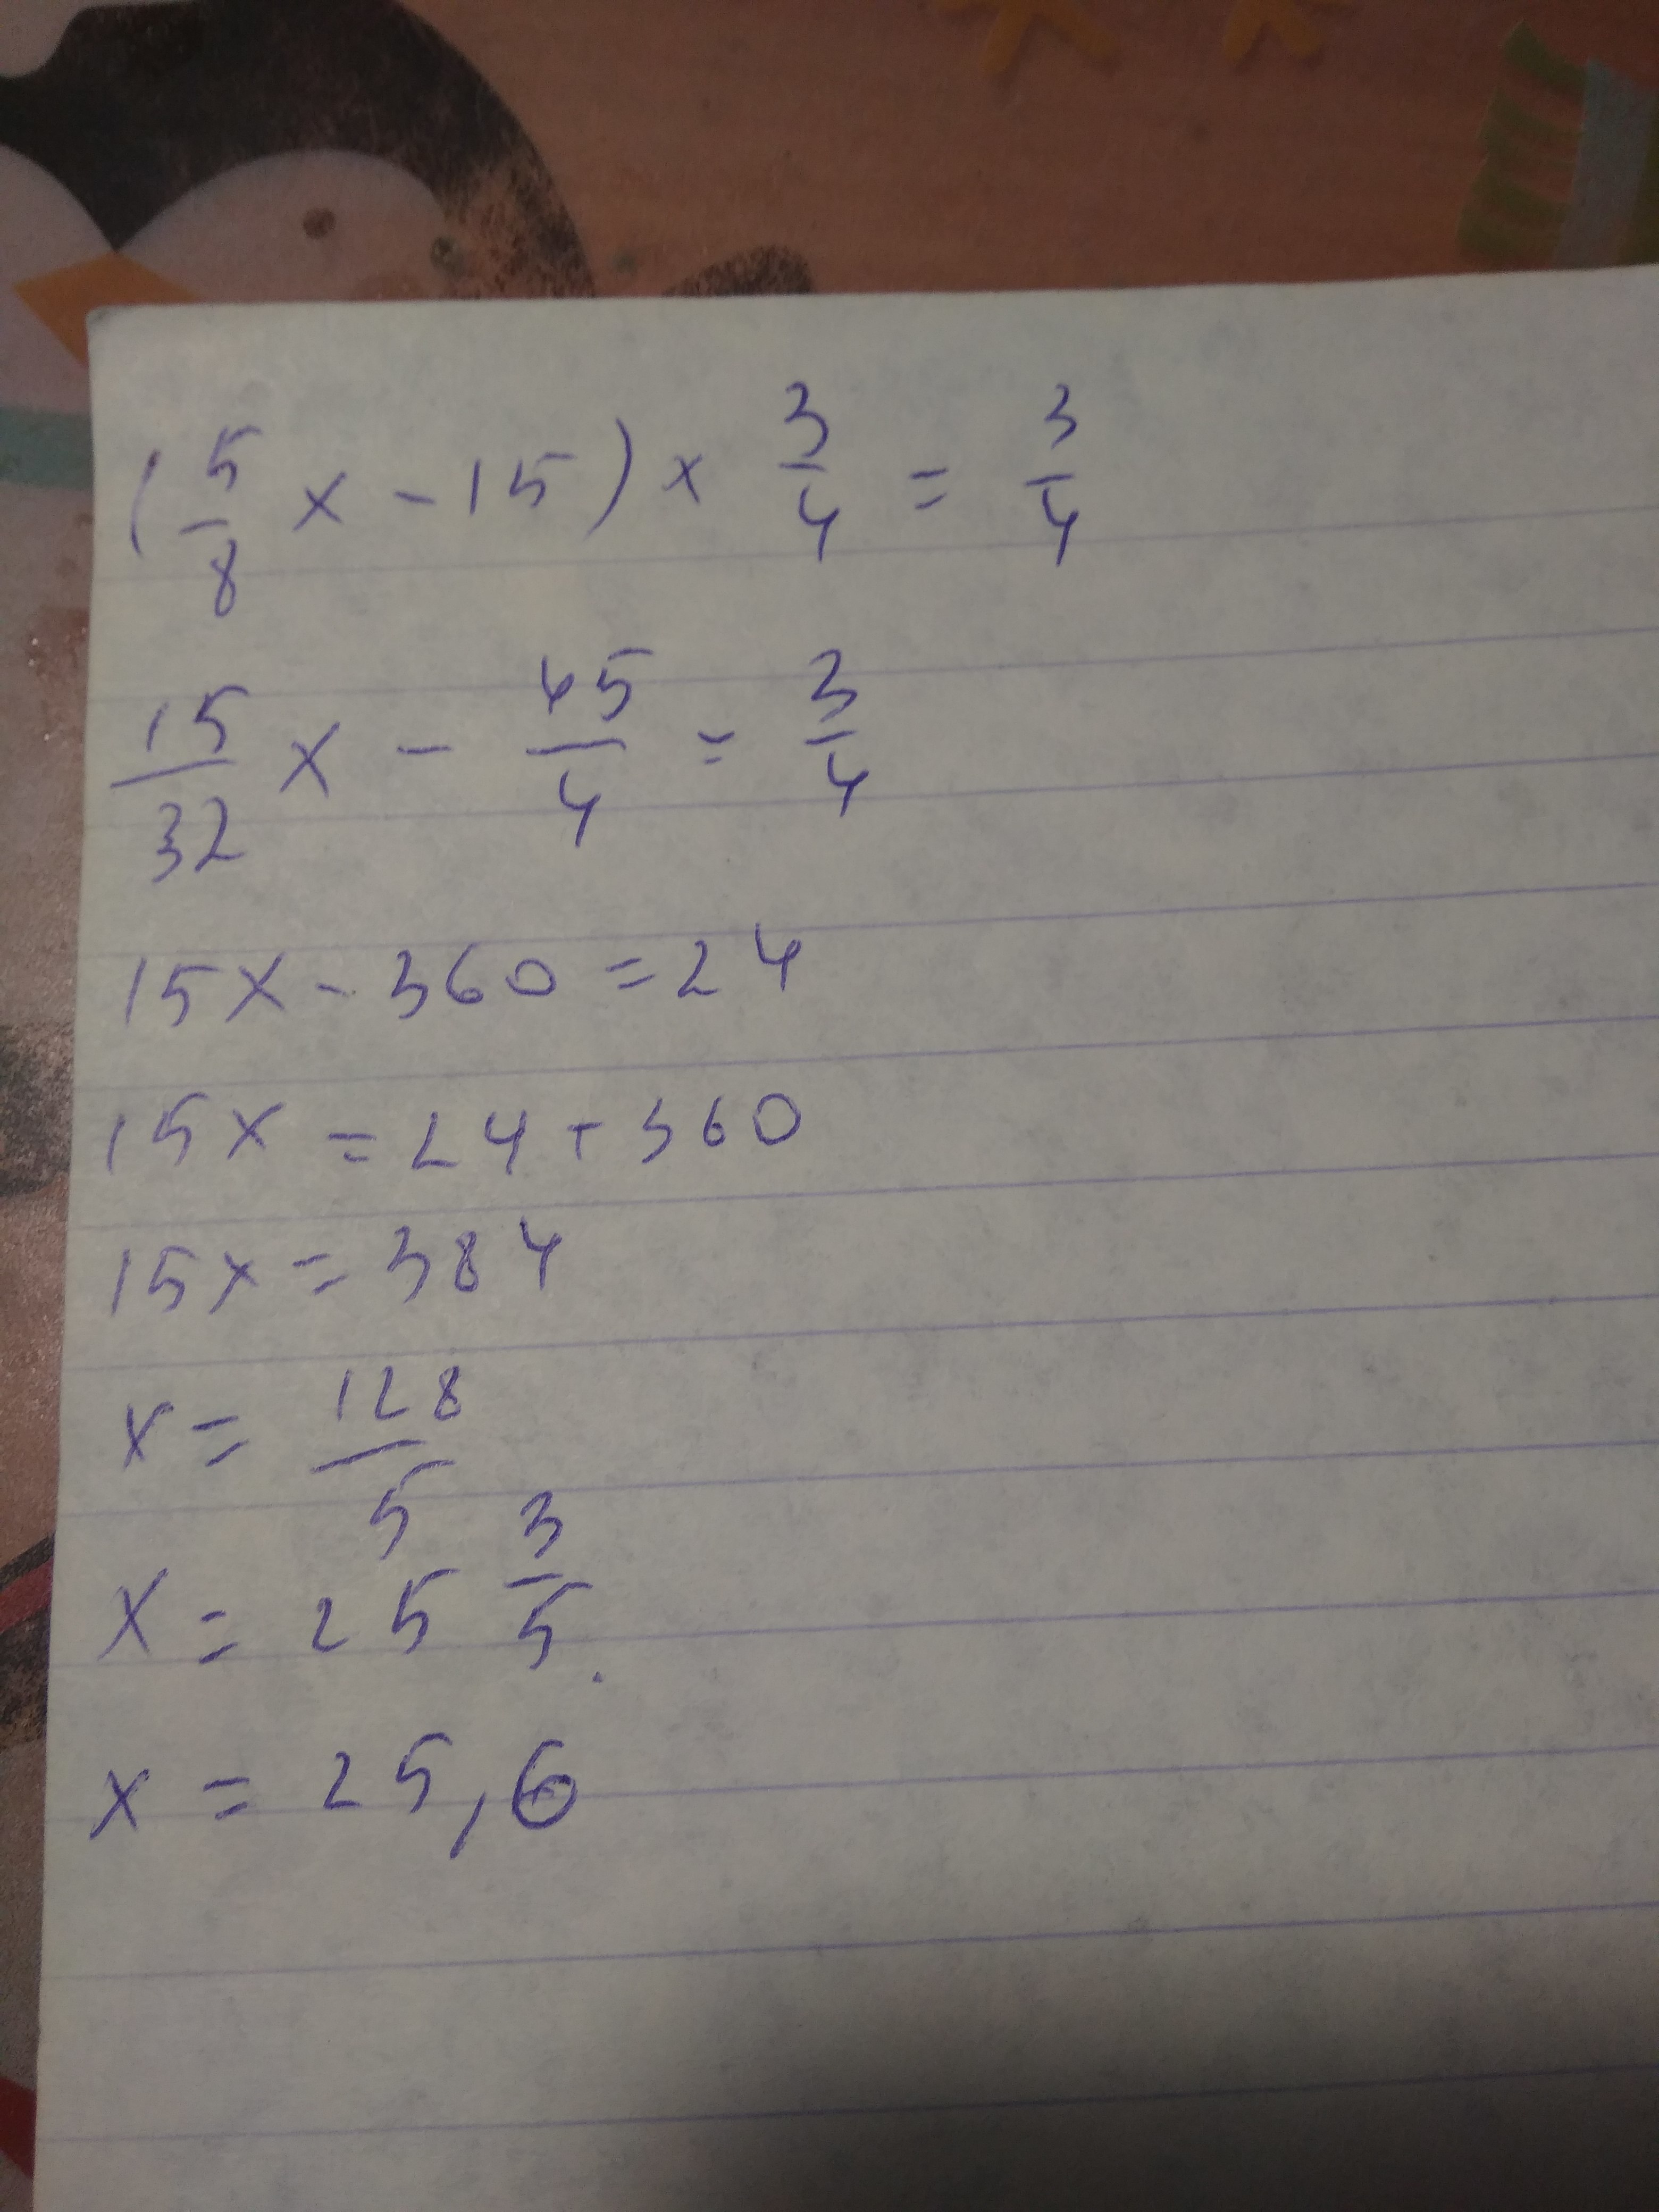 (5/8 x - 15) × 3/4 = 3/4
15/32 x - 45/4 = 3/4
15x - 360 = 24
15x = 24 + 360
15x = 384
x = 128/5
x = 25 3/5.
x = 25,6